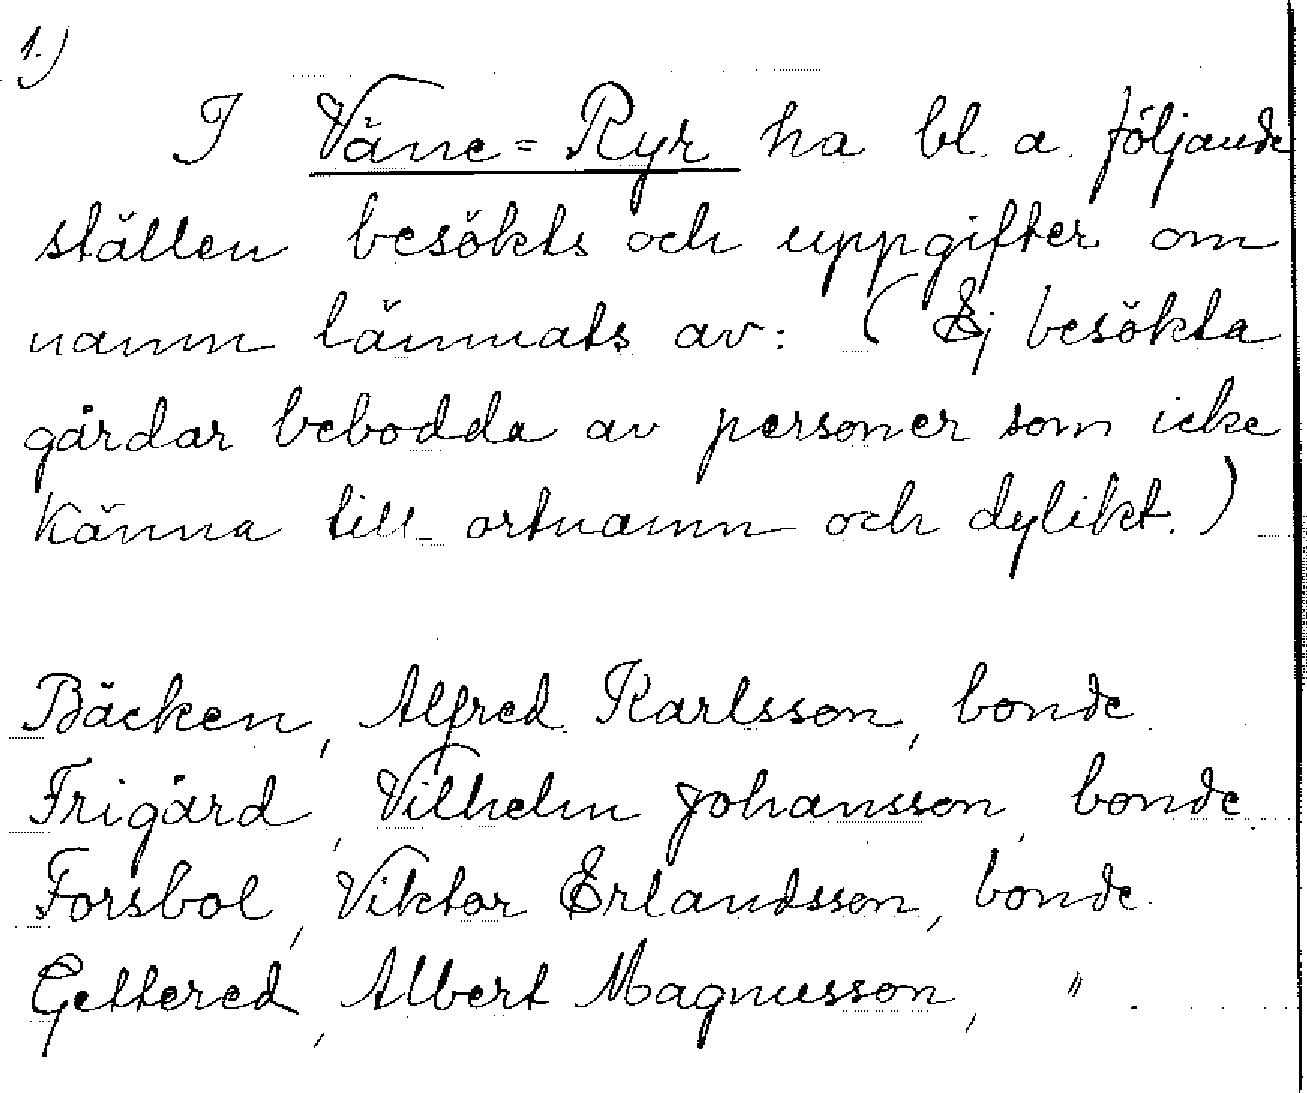 1.)
I Väne=Ryr ha bl. a. följande
ställen besökts och uppgifter om
namn lämnats av: (Ej besökta
gårdar bebodda av personer som icke
känna till ortnamn och dylikt.)
Bäcken, Alfred Karlsson, bonde
Frigård, Vilhelm Johansson, bonde.
Forsbol, Viktor Erlandsson, bonde.
Gettered, Albert Magnusson, " .